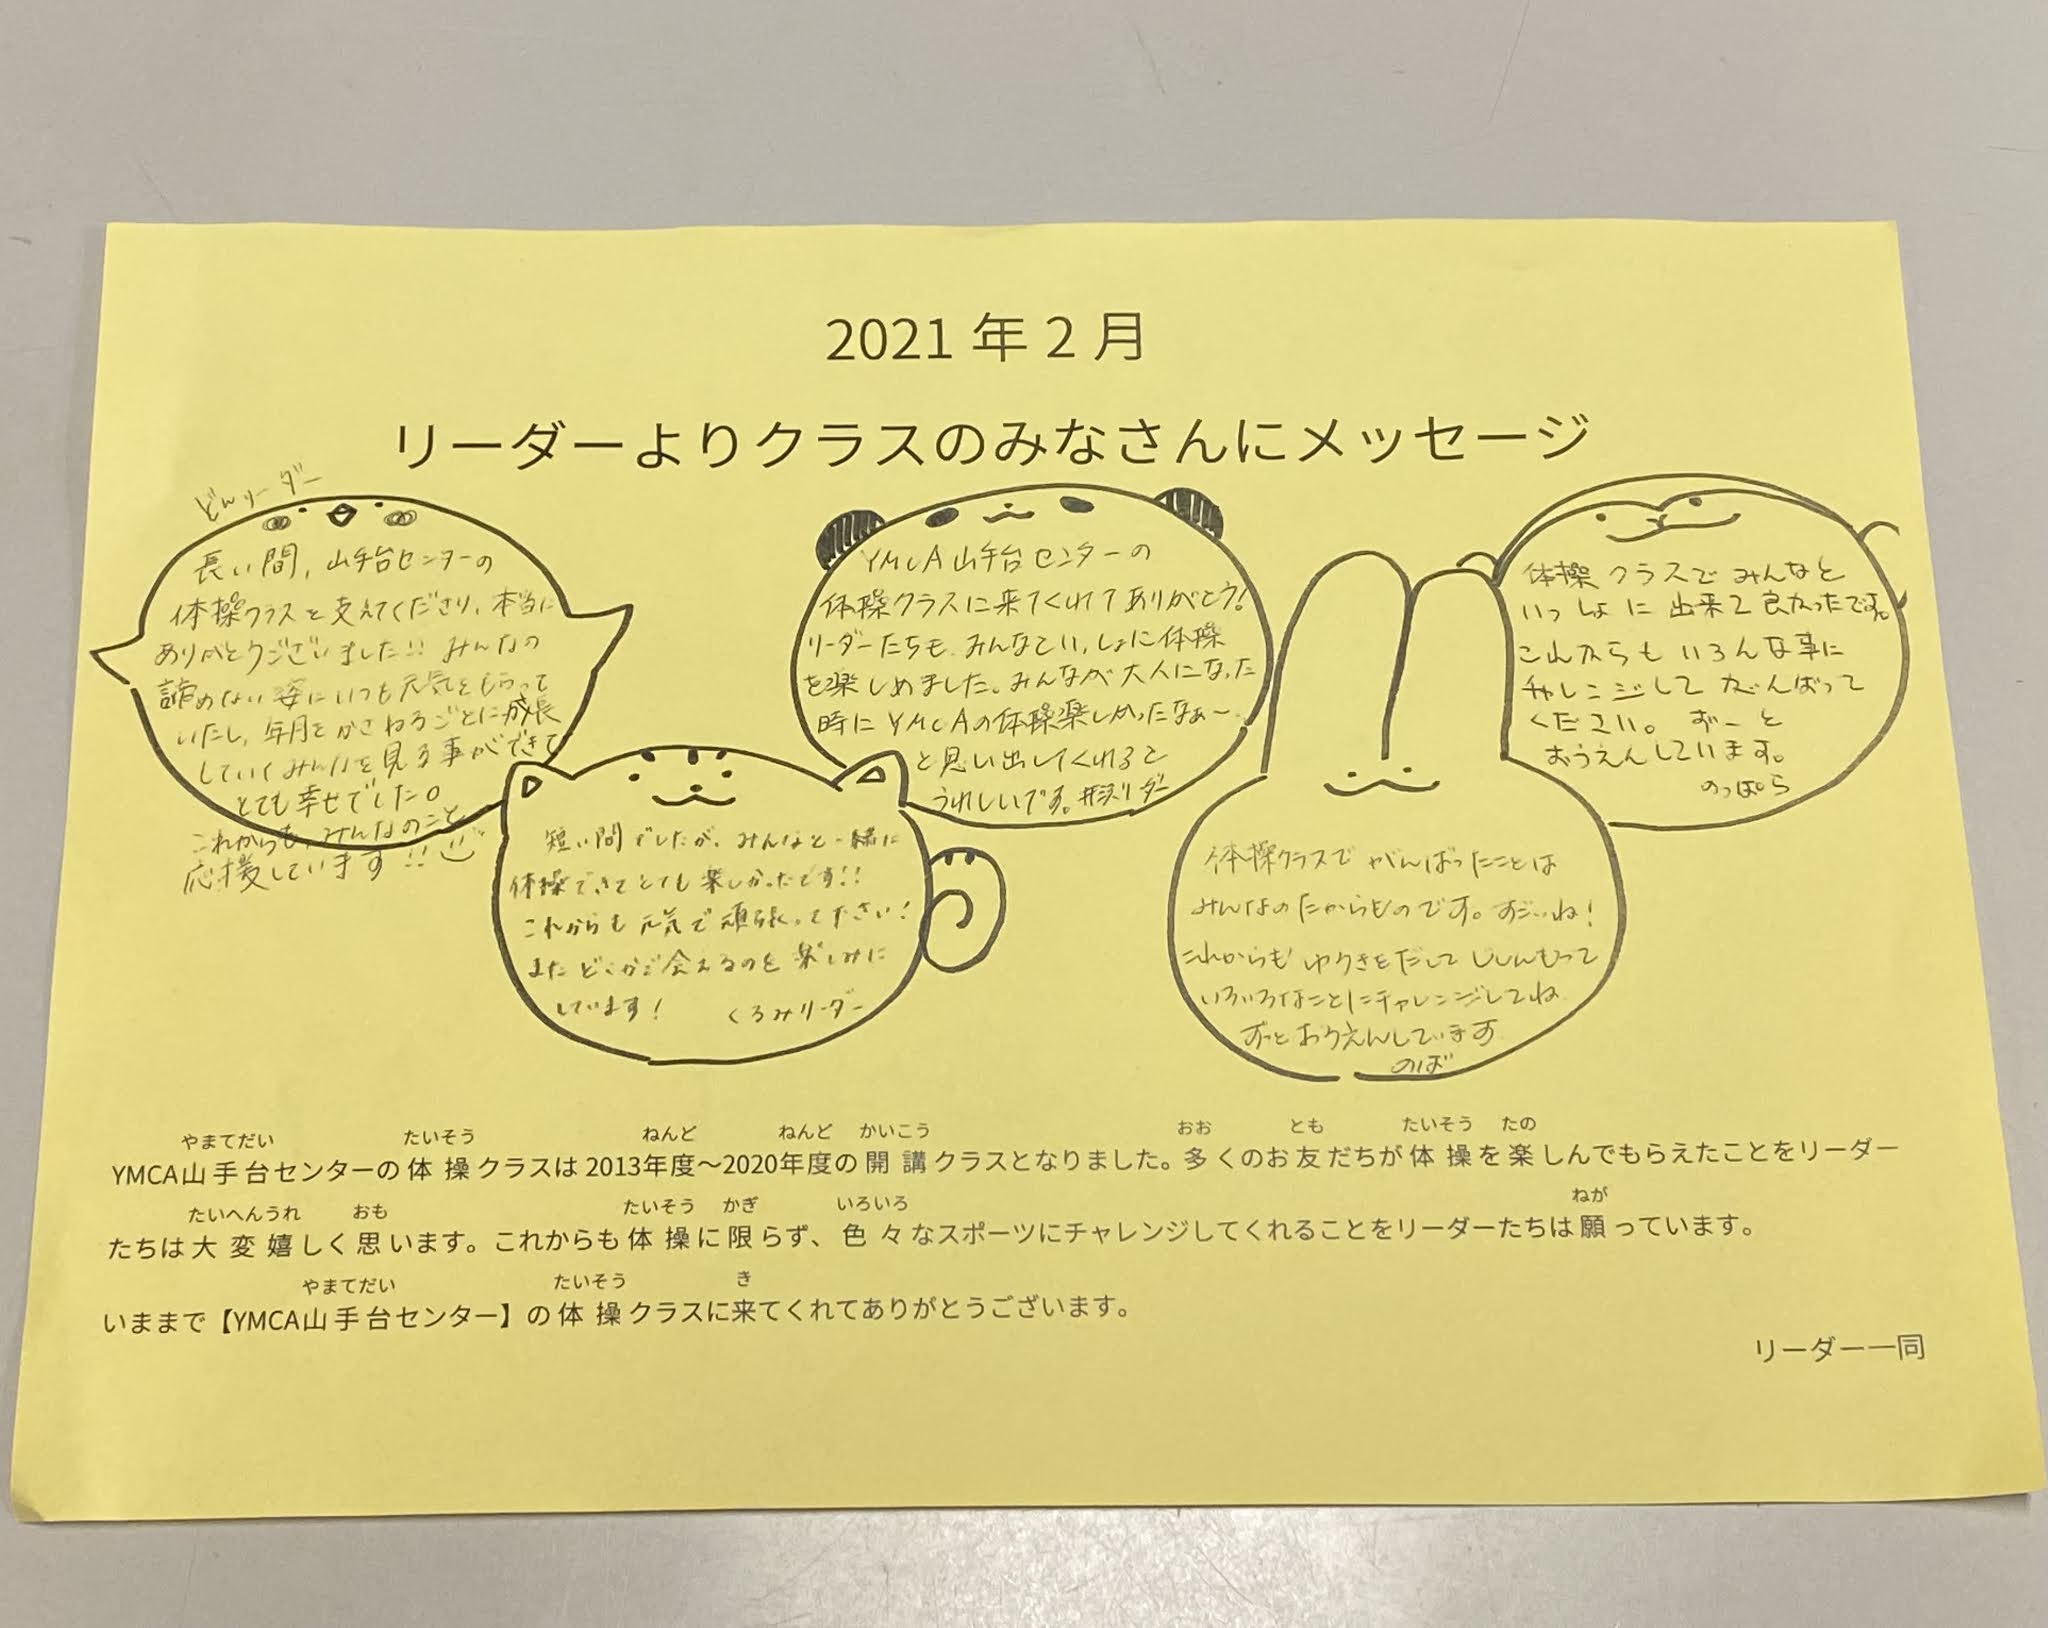 2021年2月
リーダーよりクラスのみなさんにメッセージ
どんリーダー
長い間、山手台センターの
体操クラスを支えてくださり、本当に
ありがとうございました!! みんなの
諦めない姿にいつも元気をもらって
いたし、年月をかさねるごとに成長
していくみんなを見る事ができて
とても幸せでした。
これからも、みんなのこと
応援しています!!
YMCA山手台センターの
体操クラスに来てくれてありがとう!
リーダーたちも、みんなといっしょに体操
を楽しめました。みんなが大人になった
時にYMCAの体操楽しかったなぁ〜
と思い出してくれると
うれしいです。リーダー
体操クラスでみんなと
いっしょに出来て良かったです。
これからもいろんな事に
チャレンジしてがんばって
ください。ずーと
おうえんしています。
のっぽら
短い間でしたが、みんなと一緒に
体操できてとても楽しかったです!!
これからも元気で頑張って下さい!
またどこかで会えるのを楽しみに
しています! くるみリーダー
体操クラスでがんばったことは
みんなのたからものです。すごいね!
これからもゆうきをだしてじしんもって
いろいろなことにチャレンジしてね
ずっとおうえんしています
のば
やまてだい たいそう ねんど ねんど かいこう おお とも たいそう たの
YMCA山手台センターの体操クラスは2013年度〜2020年度の開講クラスとなりました。多くのお友だちが体操を楽しんでもらえたことをリーダー
たいへんうれ おも たいそう かぎ いろいろ ねが
たちは大変嬉しく思います。これからも体操に限らず、色々なスポーツにチャレンジしてくれることをリーダーたちは願っています。
やまてだい たいそう き
いままで【YMCA山手台センター】の体操クラスに来てくれてありがとうございます。
リーダー一同